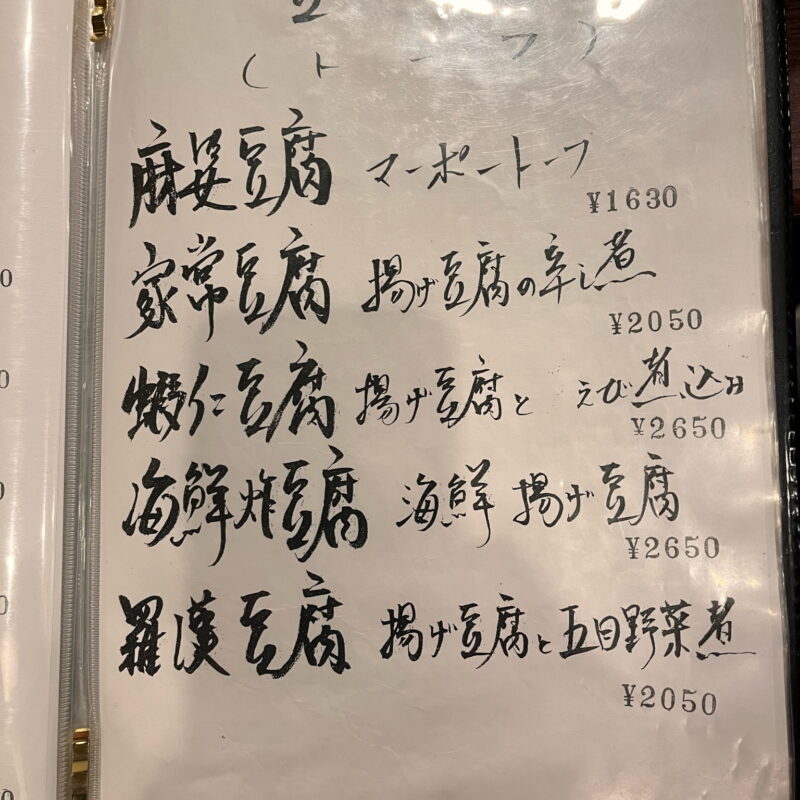 (トーフ)
麻婆豆腐 マーボートーフ
¥1630
家常豆腐 揚げ豆腐の辛し煮
¥2050
蝦仁豆腐 揚げ豆腐と えび煮込み
¥2650
海鮮炸豆腐 海鮮 揚げ豆腐
¥2650
羅漢豆腐 揚げ豆腐と五目野菜煮
¥2050